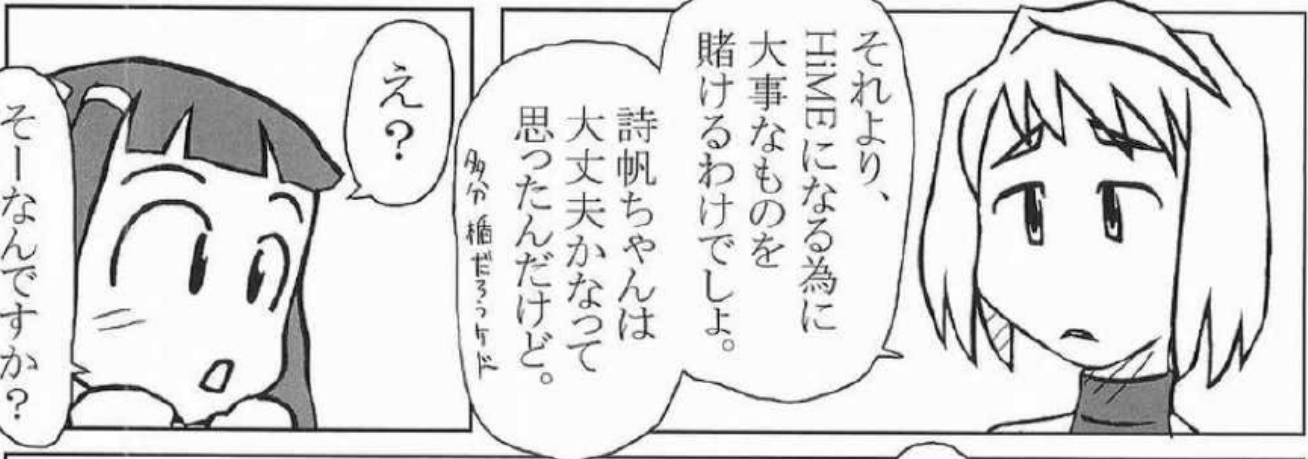 それより、
HiMEになる為に
大事なものを
賭けるわけでしょ。
詩帆ちゃんは
大丈夫かなって
思ったんだけど。
多分楯だろうケド
え？
そーなんですか？